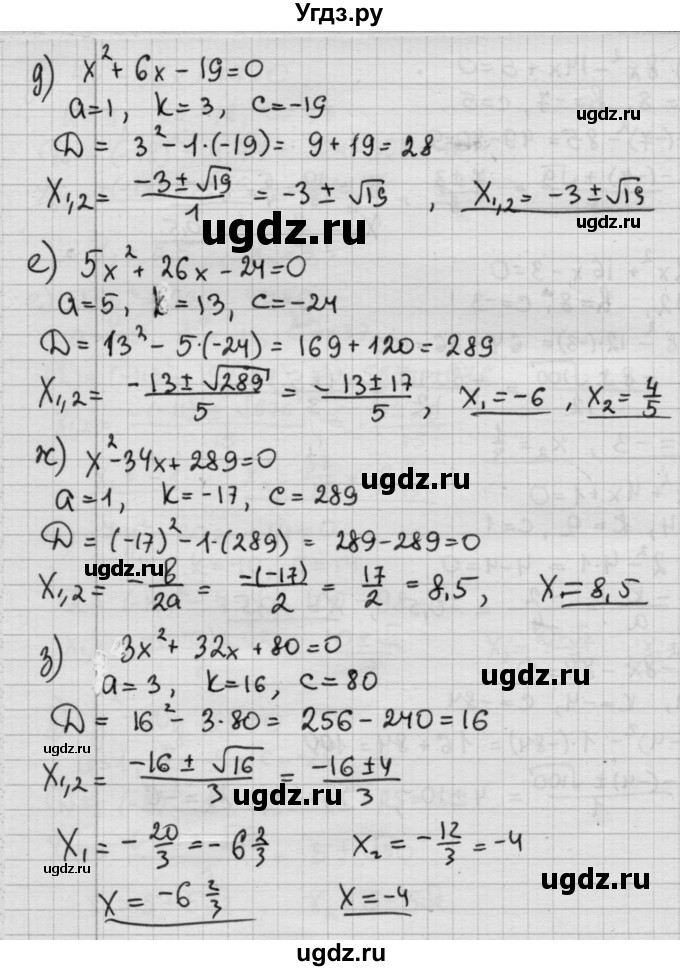 Угдз.ру
д) x² + 6x − 19 = 0
a = 1, k = 3, c = −19
ugdz.ru
D = 3² − 1·(−19) = 9 + 19 = 28
ugdz.ru
X₁,₂ = (−3 ± √19)/1 = −3 ± √19, X₁,₂ = −3 ± √19
ugdz.ru
ugdz.ru
е) 5x² + 26x − 24 = 0
a = 5, k = 13, c = −24
D = 13² − 5·(−24) = 169 + 120 = 289
X₁,₂ = (−13 ± √289)/5 = (−13 ± 17)/5, X₁ = −6, X₂ = 4/5
ж) x² − 34x + 289 = 0
ugdz.ru
a = 1, k = −17, c = 289
D = (−17)² − 1·(289) = 289 − 289 = 0
ugdz.ru
X₁,₂ = −b/2a = −(−17)/2 = 17/2 = 8,5, X = 8,5
з) 3x² + 32x + 80 = 0
ugdz.ru
a = 3, k = 16, c = 80
D = 16² − 3·80 = 256 − 240 = 16
ugdz.ru
X₁,₂ = (−16 ± √16)/3 = (−16 ± 4)/3
ugdz.ru
X₁ = −20/3 = −6 2/3 X₂ = −12/3 = −4
ugdz.ru
X = −6 2/3 X = −4
ugdz.ru
ugdz.ru